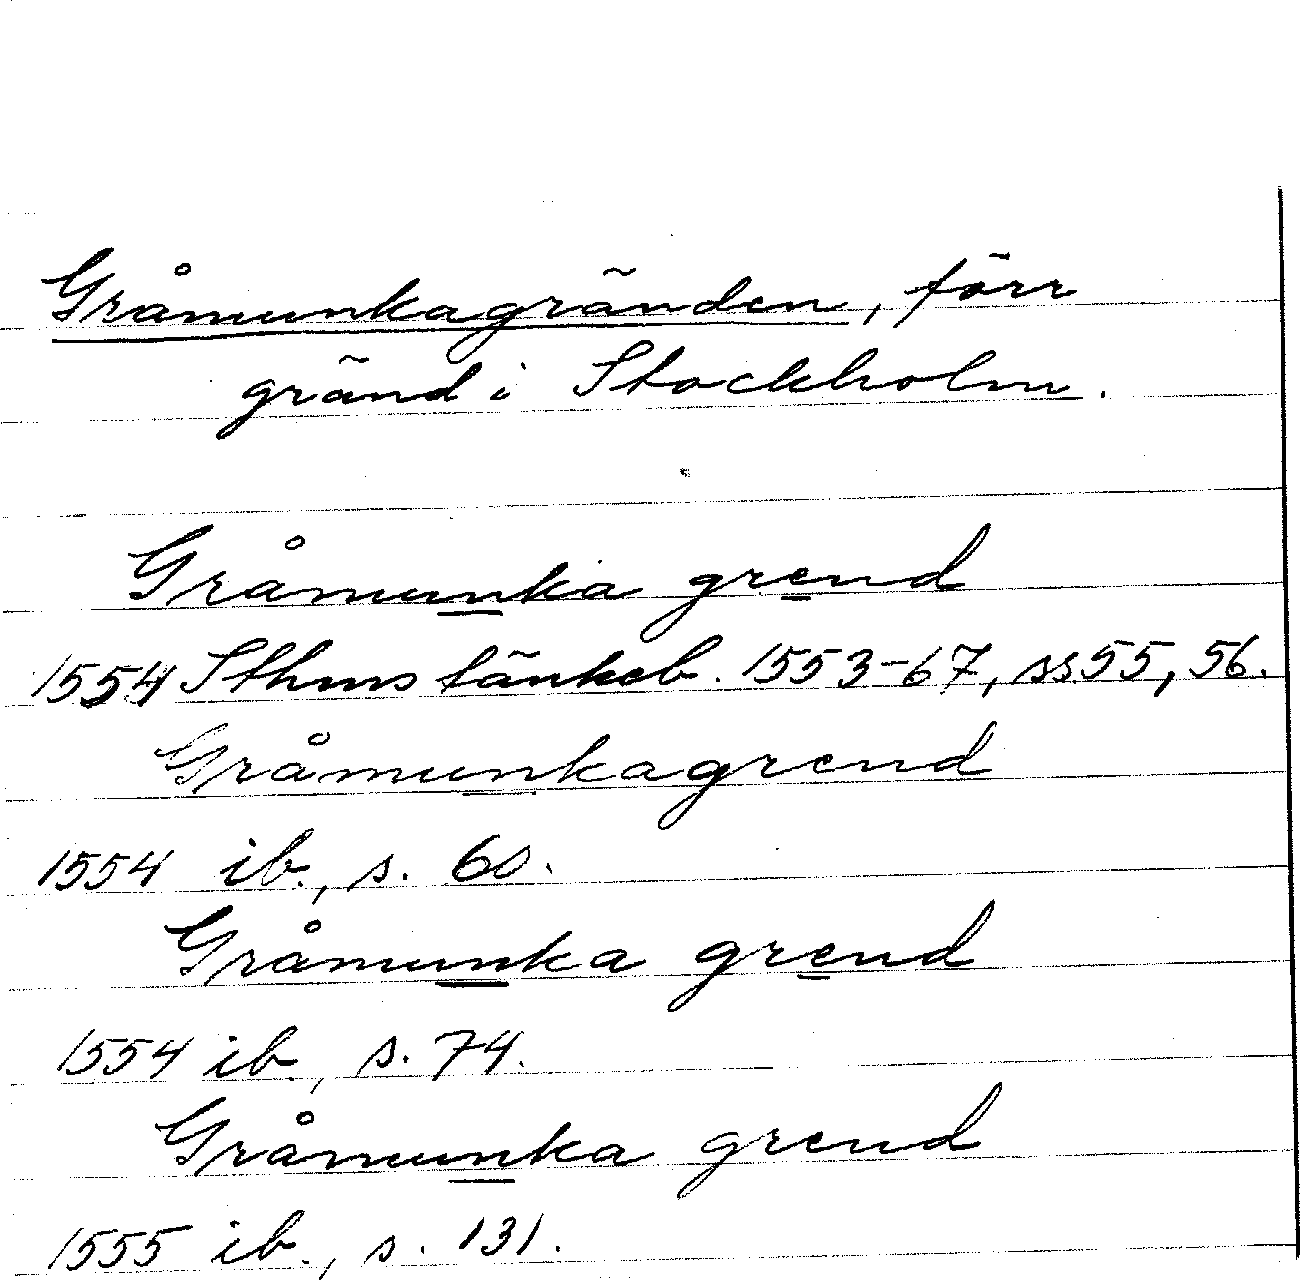 Gråmunkagränden, förr
gränd i Stockholm.
Gråmunka grend
1554 Sthms tänkeb. 1553-67, ss 55, 56.
Gråmunkagrend
1554 ib., s. 60.
Gråmunka grend
1554 ib., s. 74.
Gråmunka grend
1555 ib., s. 131.